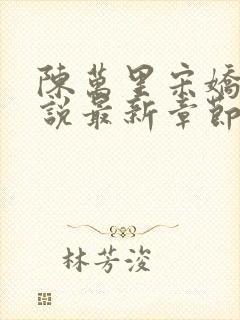 陳萬里宋嬌
說最新章節
林芳浚